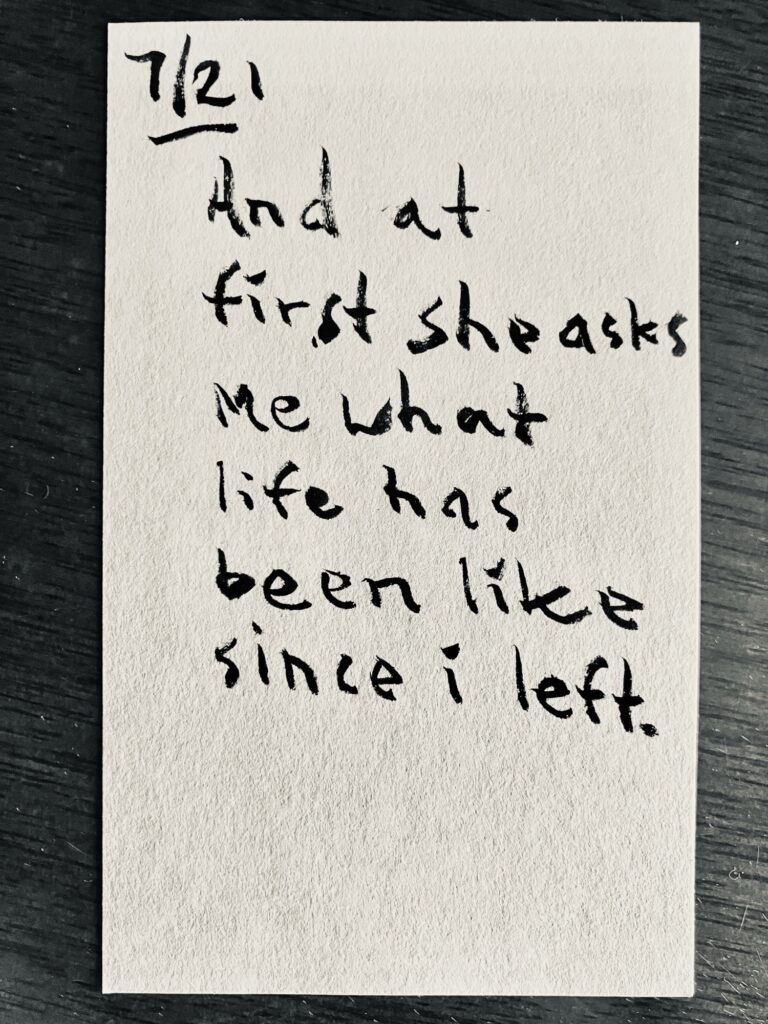 7/21
And at
first she asks
Me what
life has
been like
since i left.